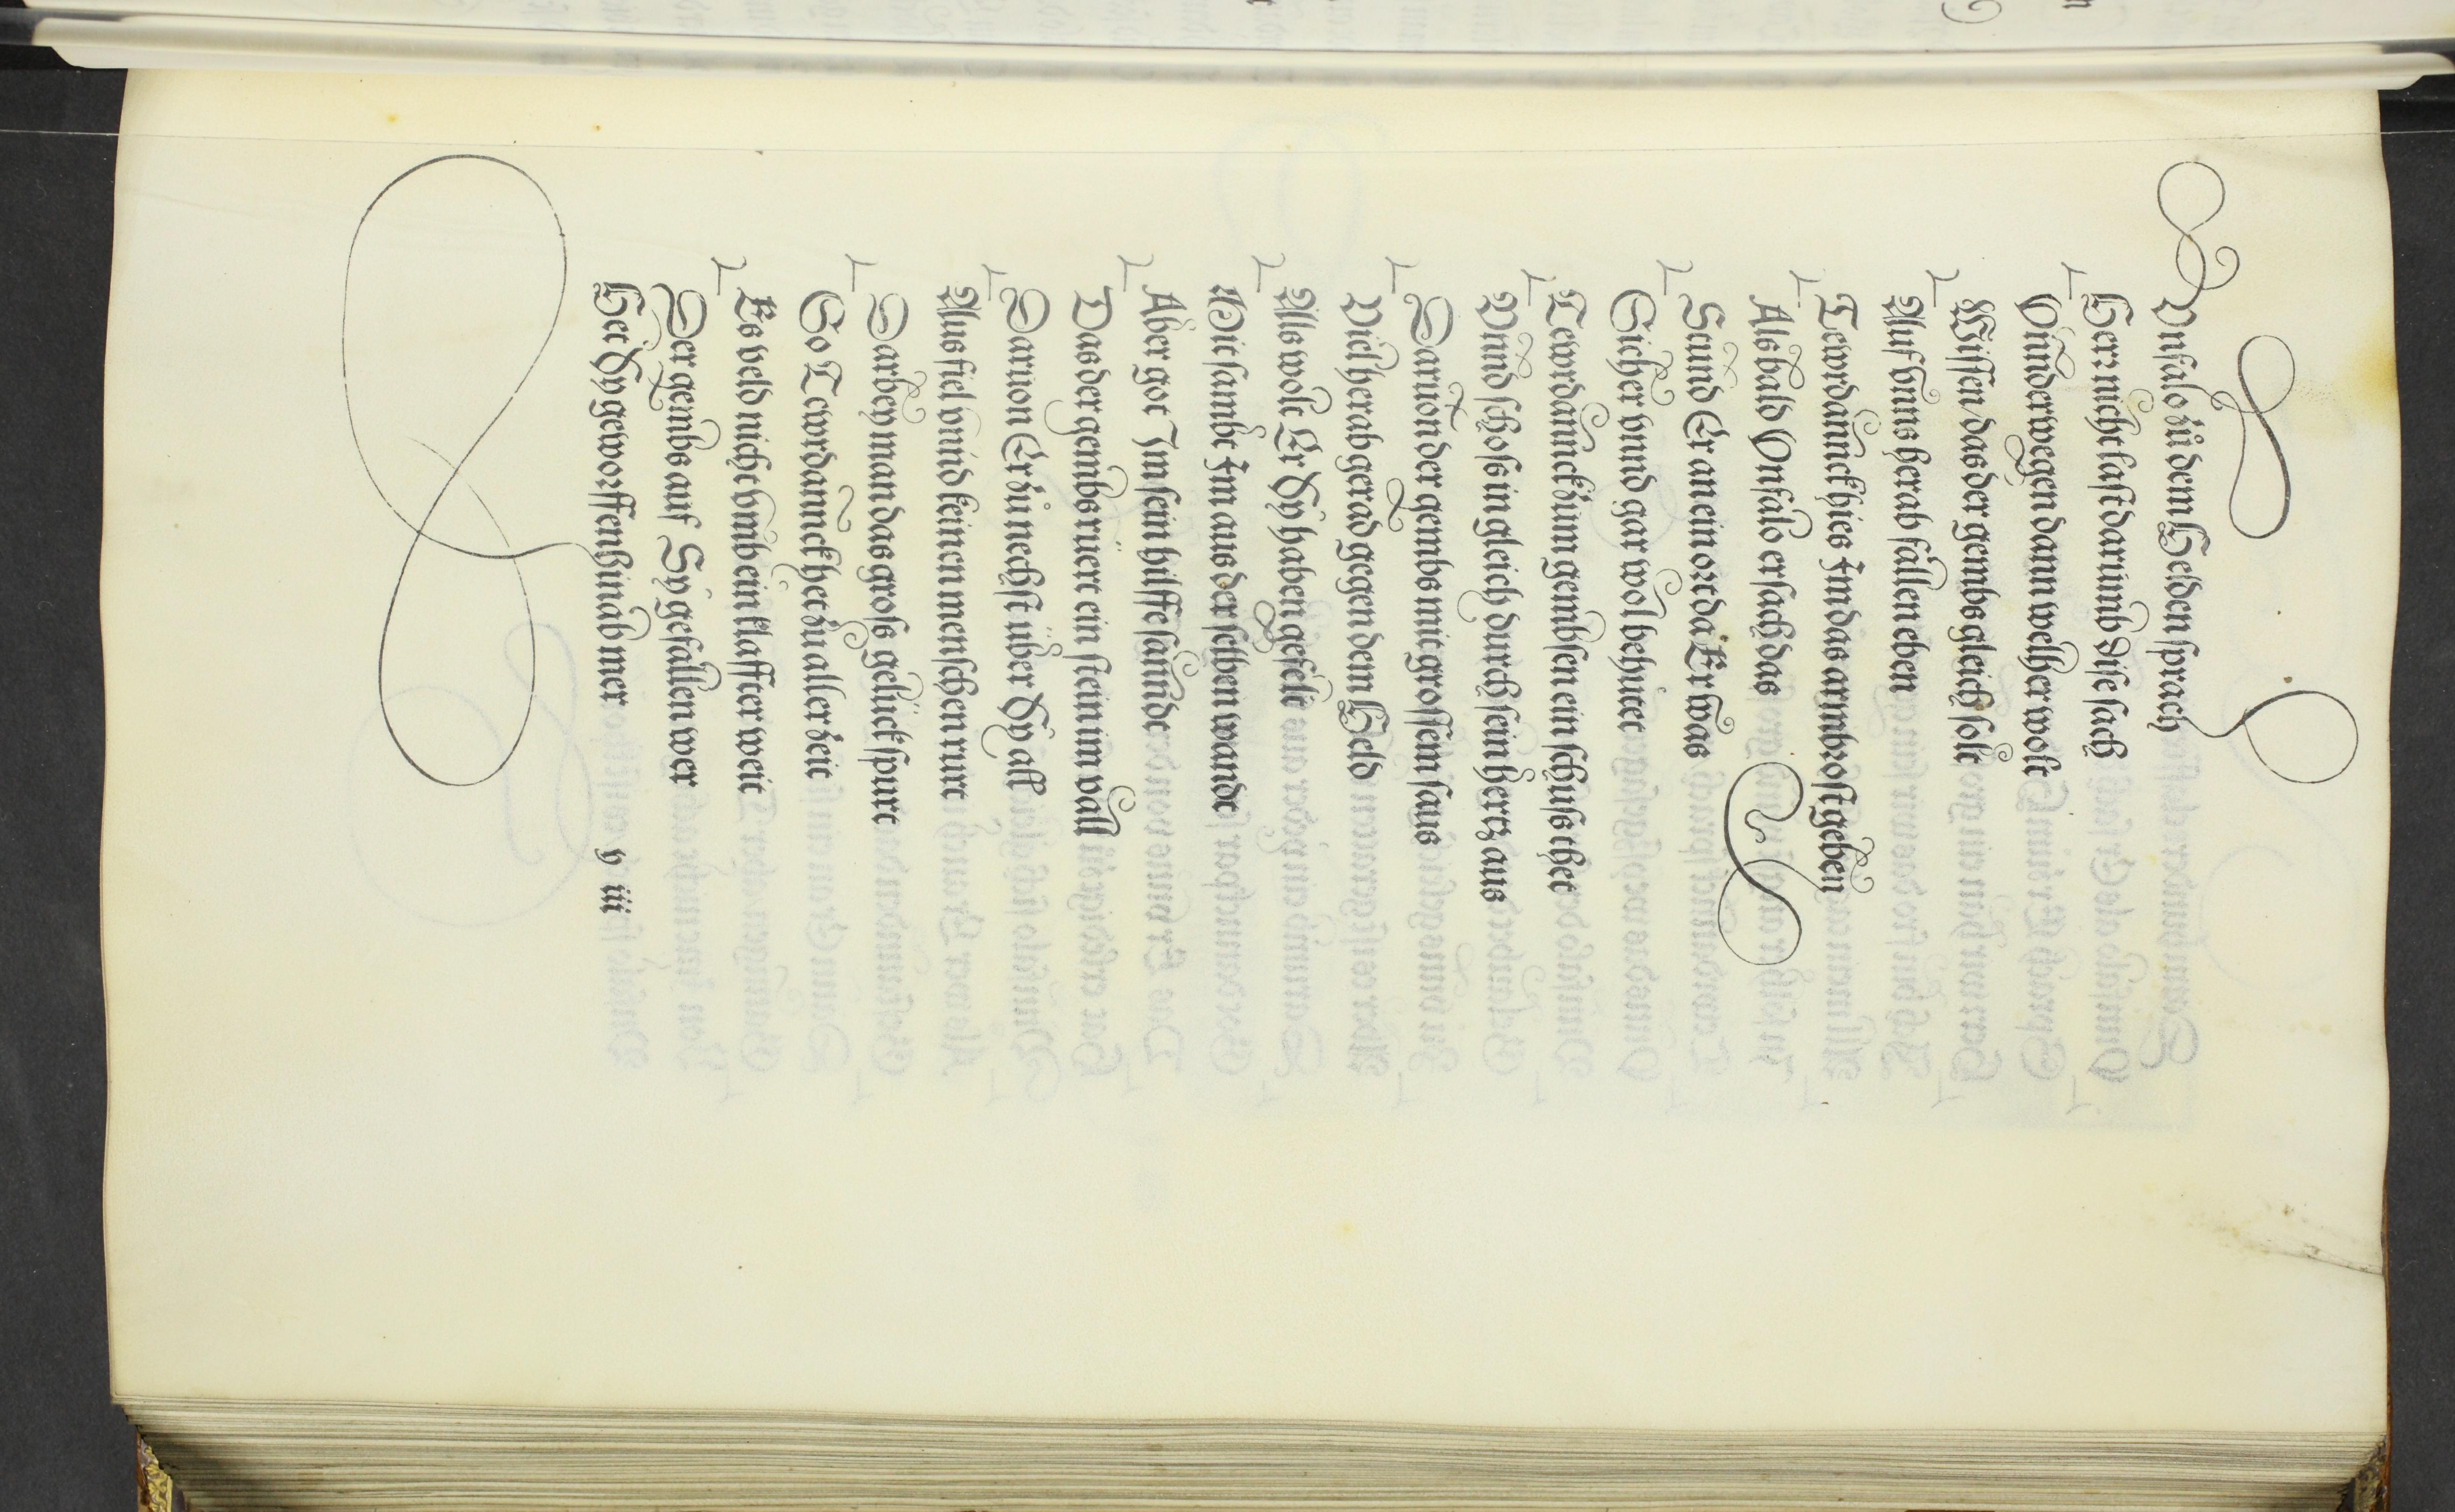 Vnfalo zů dem Helden sprach
Herr nicht last darumb dise sach
Vnnderwegen dann welher wolt
Wissen / das der gembs gleich solt
Auf vnns herab fallen eben
Tewrdannck hies Im das armbrost geben
Als bald Vnfalo ersach das
Stund Er an ein ort da Er was
Sicher vnnd gar wol behuet
Tewrdannck zum gembsen ein schuss thet
Vnnd schoss in gleich durch sein hertz aus
Daruon der gembs mit grossem saus
Viel herab gerad gegen dem Held
Alls wolt Er Sy haben gefelt
Mit sambt Im aus der selben wandt
Aber got Im sein hilffe sanndt
Das der gembs ruert ein stein im vall
Daruon Er zů nechst über Sy all
Aus fiel vnnd keinen menschen rurt
Darbey man das gross gelück spurt
So Tewrdannck het zu aller zeit
Es veld nicht vmb ein klaffter weit
Der gembs auf Sy gefallen wer
Het Sy geworffen hinab mer
h iii